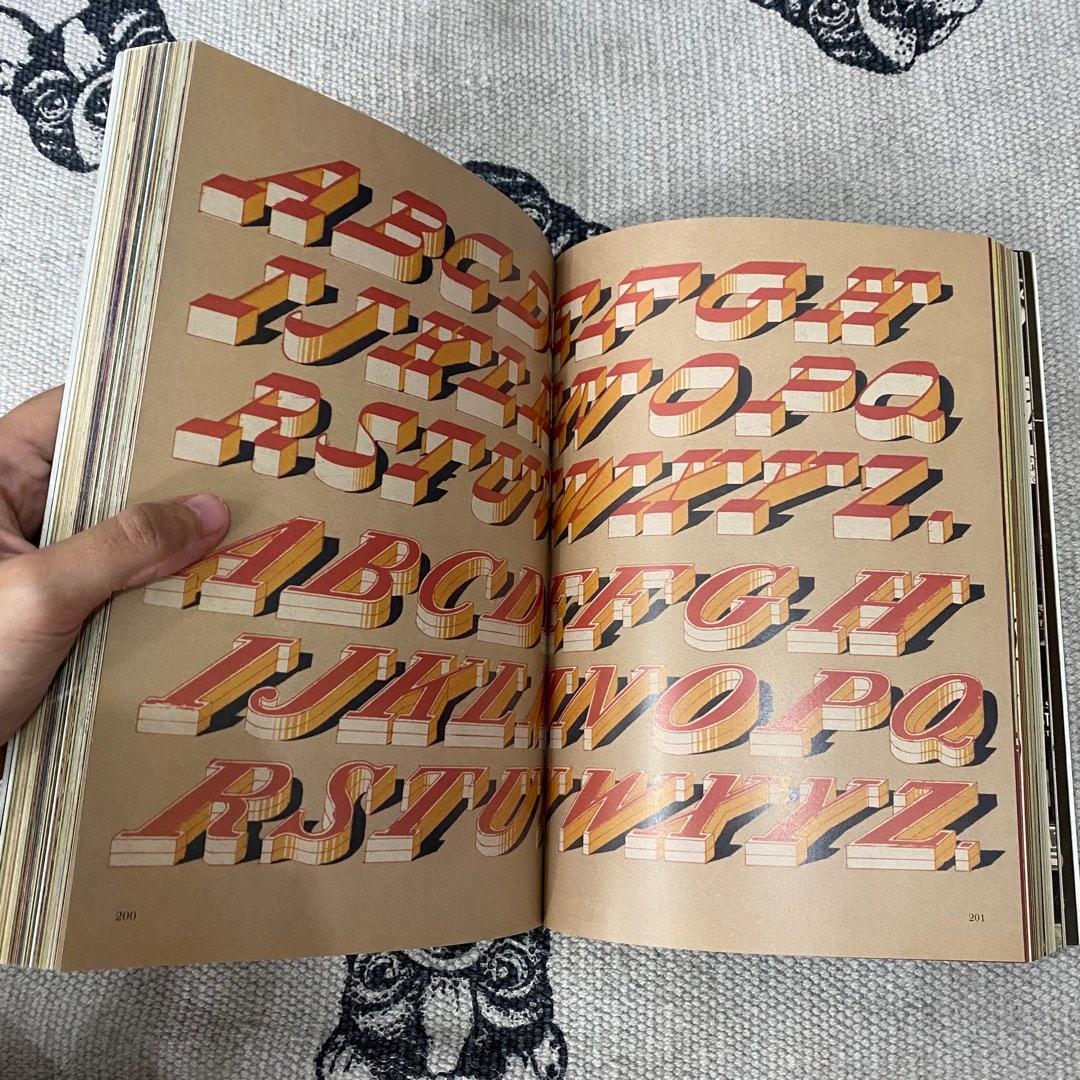 ABCDEFGH
IJKLMNOPQ
RSTUVWXYZ.
ABCDEFGH
IJKLMNOPQ
RSTUVWXYZ.
200
201